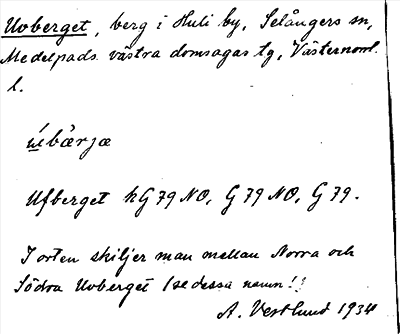 Uvberget, berg i Huli by, Selångers sn,
Medelpads västra domsagas tg, Västernorrl.
l.
Ufberget hG 79 NO, G 79 NO, G 79.
I orten skiljer man mellan Norra och
Södra Uvberget (se dessa namn!)
A. Vestlund 1934